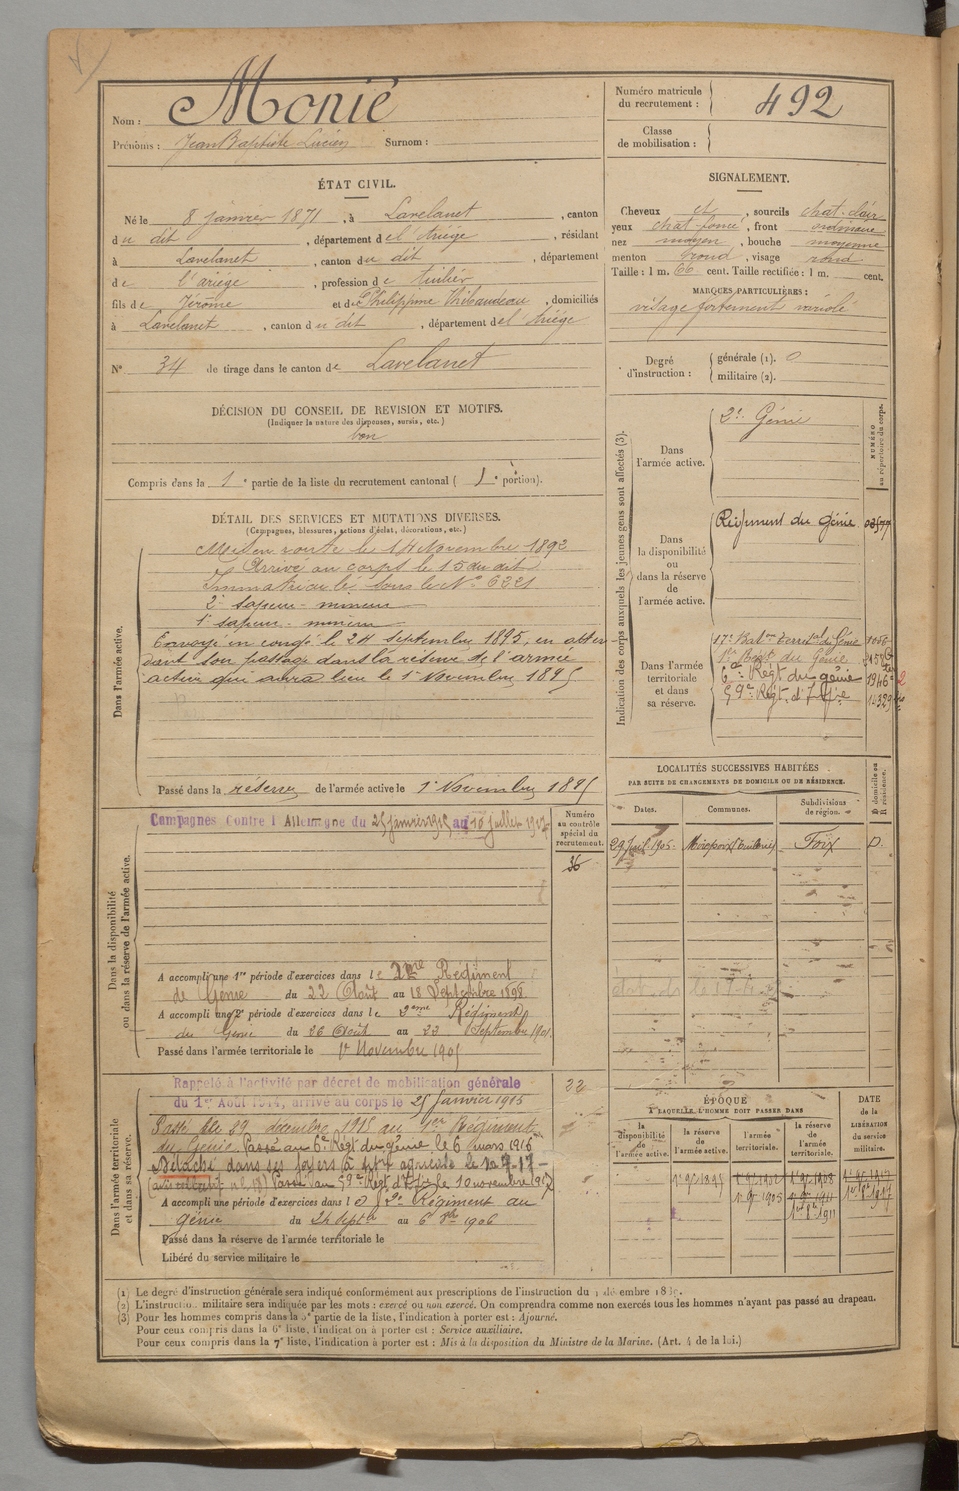 Nom : Monié
Prénoms : Jean Baptiste Lucien Surnom :
Numéro matricule du recrutement : 492
Classe de mobilisation :
ÉTAT CIVIL.
Né le 8 janvier 1871, à Lavelanet, canton
du dit, département de l'Ariége, résidant
à Lavelanet, canton du dit, département
de l'ariége, profession de tuilier
fils de Jérôme et de Philippine Thibaudeau, domiciliés
à Lavelanet, canton du dit, département de l'Ariége
N° 34 de tirage dans le canton de Lavelanet
SIGNALEMENT.
Cheveux et, sourcils chat. clair
yeux chat. foncé, front ordinaire
nez moyen, bouche moyenne
menton rond, visage rond
Taille : 1 m. 66 cent. Taille rectifiée : 1 m. cent.
MARQUES PARTICULIÈRES :
visage fortement variolé
Degré d'instruction : générale (1). 0
militaire (2).
DÉCISION DU CONSEIL DE REVISION ET MOTIFS.
(Indiquer la nature des dispenses, sursis, etc.)
bon
Compris dans la 1e partie de la liste du recrutement cantonal (1e portion).
DÉTAIL DES SERVICES ET MUTATIONS DIVERSES.
(Campagnes, blessures, actions d'éclat, décorations, etc.)
Dans l'armée active.
Mis en route le 14 Novembre 1892
Arrivé au corps le 15 du dit
Immatriculé sous le N° 6321
2e sapeur-mineur
1e sapeur-mineur
Envoyé en congé le 24 septembre 1895, en atten-
dant son passage dans la réserve de l'armée
active qui aura lieu le 1er Novembre 1895
Passé dans la réserve de l'armée active le 1er Novembre 1895
Indication des corps auxquels les jeunes gens sont affectés (3).
NUMÉRO au répertoire du corps.
Dans l'armée active.
2e Génie
Dans la disponibilité ou dans la réserve de l'armée active.
Régiment du Génie
Dans l'armée territoriale et dans sa réserve.
17e Baton territal du Génie
1er Regt du Génie
6e Regt du génie 1946
59e Regt d'Infrie
LOCALITÉS SUCCESSIVES HABITÉES
PAR SUITE DE CHANGEMENTS DE DOMICILE OU DE RÉSIDENCE.
Dates. Communes. Subdivisions de région. D domicile ou R résidence.
1905 Mirepoix Foix D.
Dans la disponibilité ou dans la réserve de l'armée active.
Campagnes Contre l'Allemagne du 25 janvier 1915 au 10 juillet 1917
Numéro au contrôle spécial du recrutement.
36
A accompli une 1re période d'exercices dans le 2me Régiment
de Génie du 22 Août au 18 Septembre 1898
A accompli une 2e période d'exercices dans le 2eme Régiment
du Génie du 26 Août au 22 Septembre 1901.
Passé dans l'armée territoriale le 1er Novembre 1905
Dans l'armée territoriale et dans sa réserve.
Rappelé à l'activité par décret de mobilisation générale
du 1er Août 1914, arrivé au corps le 25 Janvier 1915
22
Passé le 29 décembre 1915 au 1er Régiment
du Génie. Passé au 6e Regt du génie le 6 mars 1916
Détaché dans ses foyers
Passé au 59e Regt d'Infie le 10 novembre 1917
A accompli une période d'exercices dans le 2e Régiment au
génie du 24 septre au 6 8bre 1906
Passé dans la réserve de l'armée territoriale le
Libéré du service militaire le
ÉPOQUE
A LAQUELLE L'HOMME DOIT PASSER DANS
la disponibilité de l'armée active. la réserve de l'armée active. l'armée territoriale. la réserve de l'armée territoriale.
DATE de la LIBÉRATION du service militaire.
(1) Le degré d'instruction générale sera indiqué conformément aux prescriptions de l'instruction du
(2) L'instruction militaire sera indiquée par les mots : exercé ou non exercé. On comprendra comme non exercés tous les hommes n'ayant pas passé au drapeau.
(3) Pour les hommes compris dans la 5e partie de la liste, l'indication à porter est : Ajourné.
Pour ceux compris dans la 6e liste, l'indication à porter est : Service auxiliaire.
Pour ceux compris dans la 7e liste, l'indication à porter est : Mis à la disposition du Ministre de la Marine. (Art. 4 de la loi.)